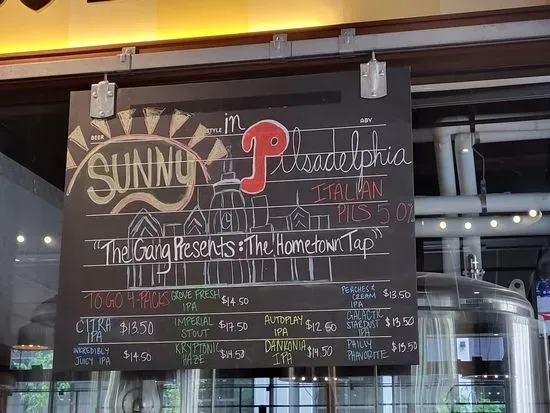 BEER STYLE ABV
SUNNY in Pilsadelphia
ITALIAN
PILS 5.0%
"The Gang Presents: The Hometown Tap"
TO GO 4-PACKS
CITRA IPA $13.50
INCREDIBLY JUICY IPA $14.50
GROVE FRESH IPA $14.50
IMPERIAL STOUT $17.50
KRYPTONIC HAZE $14.50
AUTOPLAY IPA $12.50
DANKONIA IPA $14.50
PEACHES & CREAM IPA $13.50
GALACTIC STARDUST IPA $13.50
PHILLY PHAVORITE $13.50